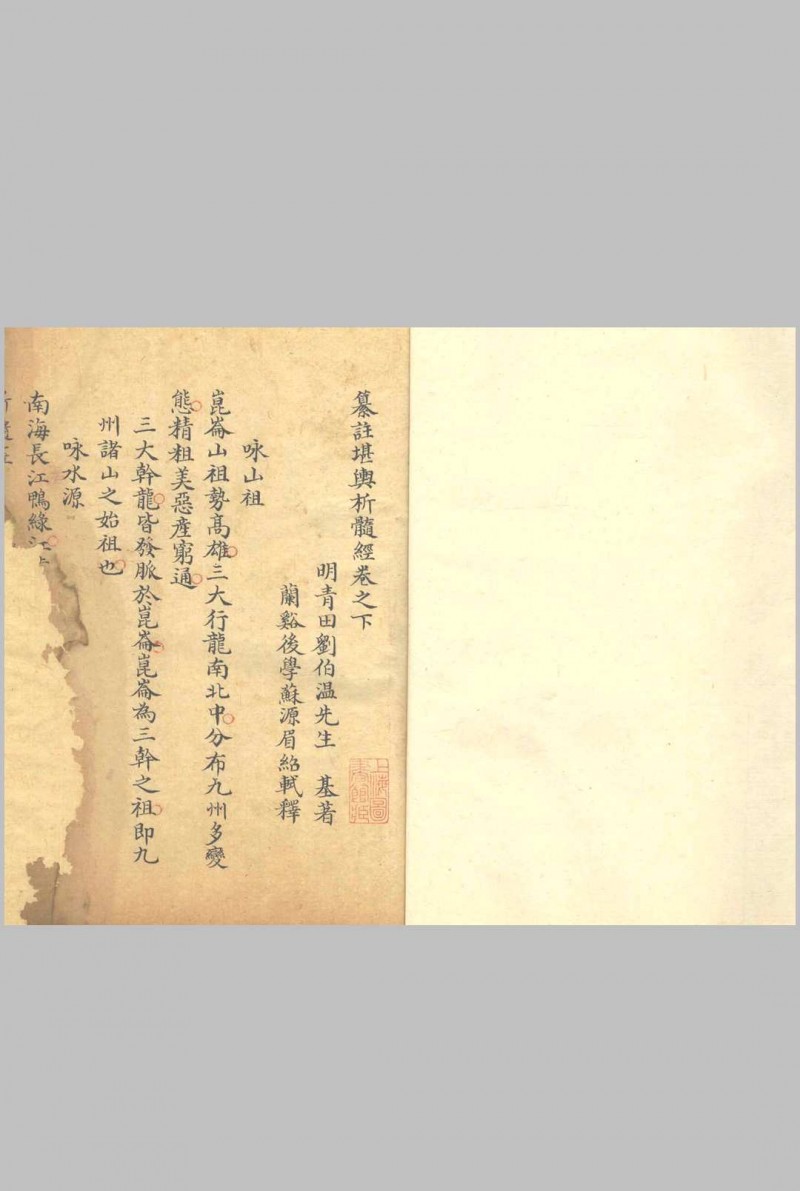 纂註堪輿析髓經卷之下
明青田劉伯温先生 基著
蘭谿後學蘇源眉紹軾釋
上海圖書館藏
咏山祖
崑崙山祖勢髙雄三大行龍南北中分布九州多變
態精粗美惡産窮通
三大幹龍皆發脈於崑崙崑崙為三幹之祖即九
州諸山之始祖也
咏水源
南海長江鴨綠江